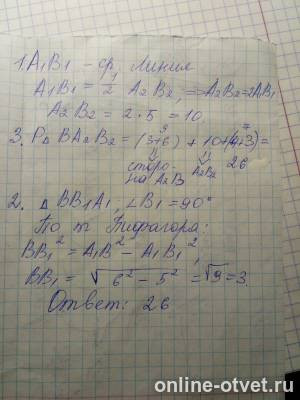 1. A₁B₁ - ср. линия
A₁B₁ = 1/2 A₂B₂, => A₂B₂=2AB₁
A₂B₂ = 2 · 5 = 10.
9 7
3. P△ BA₂B₂ = (3+6) + 10+(4+3)=
сторо- A₂B₂ 26
на A₂B
2. △ BB₁A₁, ∠B₁ = 90°
По т Пифагора:
BB₁² = A₁B² - A₁B₁²,
BB₁ = √6² - 5² = √9 = 3.
Ответ: 26
online-otvet.ru